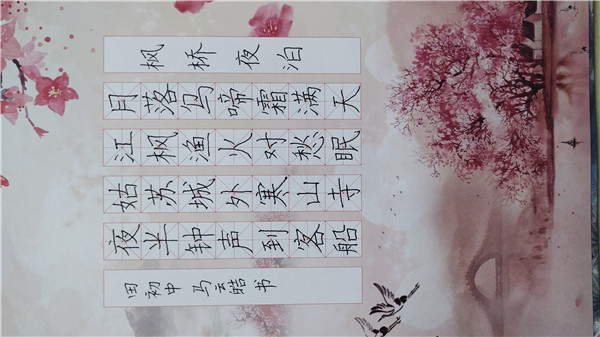 枫桥夜泊
月落乌啼霜满天
江枫渔火对愁眠
姑苏城外寒山寺
夜半钟声到客船
田初中 马云皓书